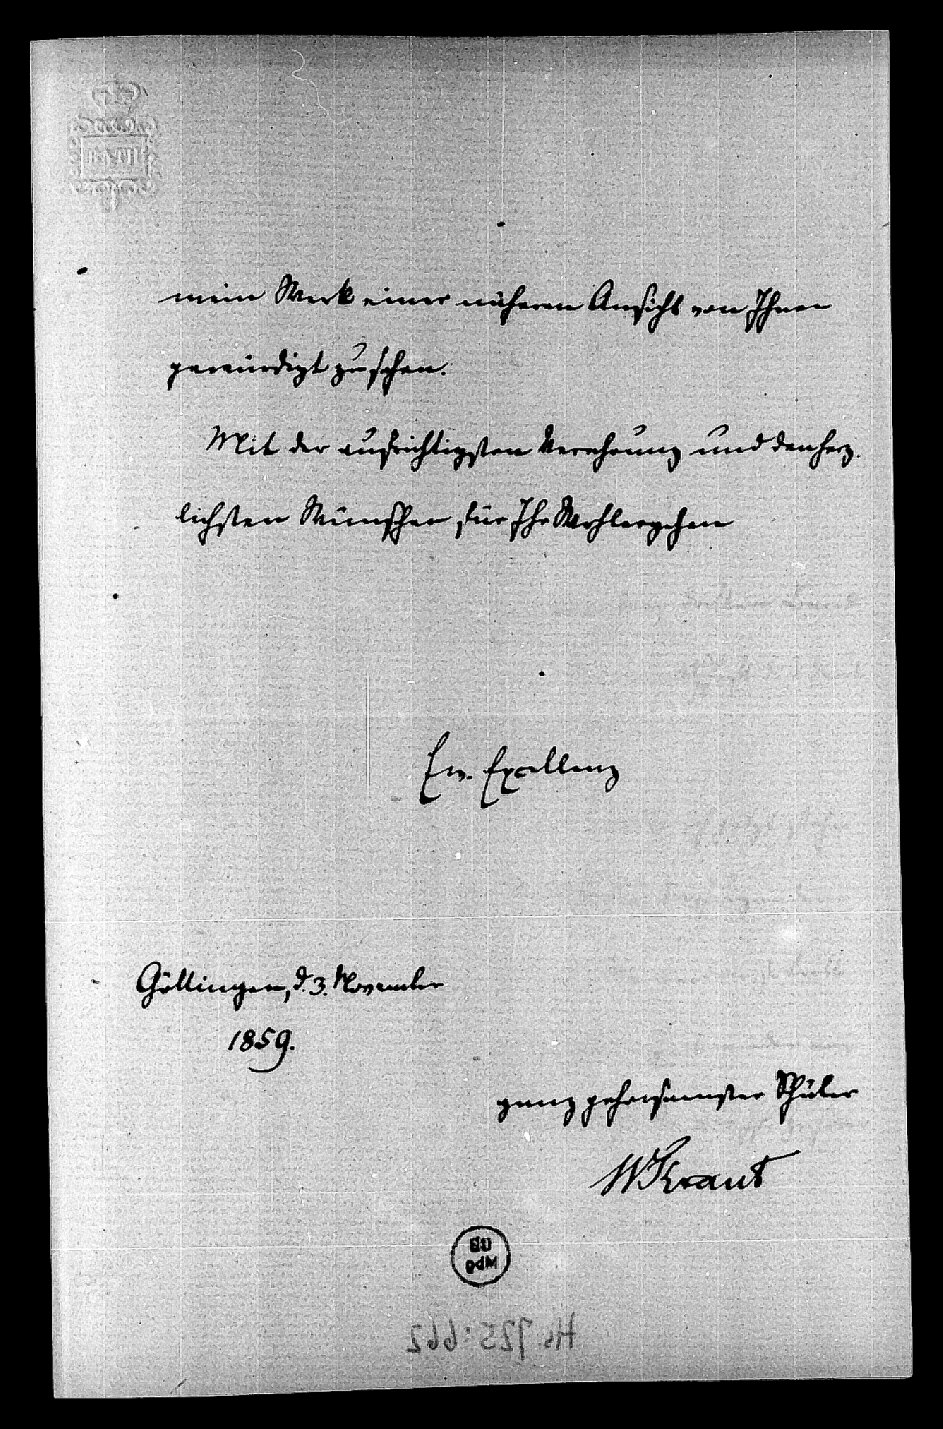 mein Werk einer näheren Ansicht von Ihnen
gewürdigt zu sehen.
Mit der aufrichtigsten Verehrung und den herz-
lichsten Wünschen für Ihr Wohlergehen
Ew. Excellenz
Göttingen, d. 3. November
1859.
ganz gehorsamster Schüler
W Kraut
UB
Mbg
Hs. 725:662